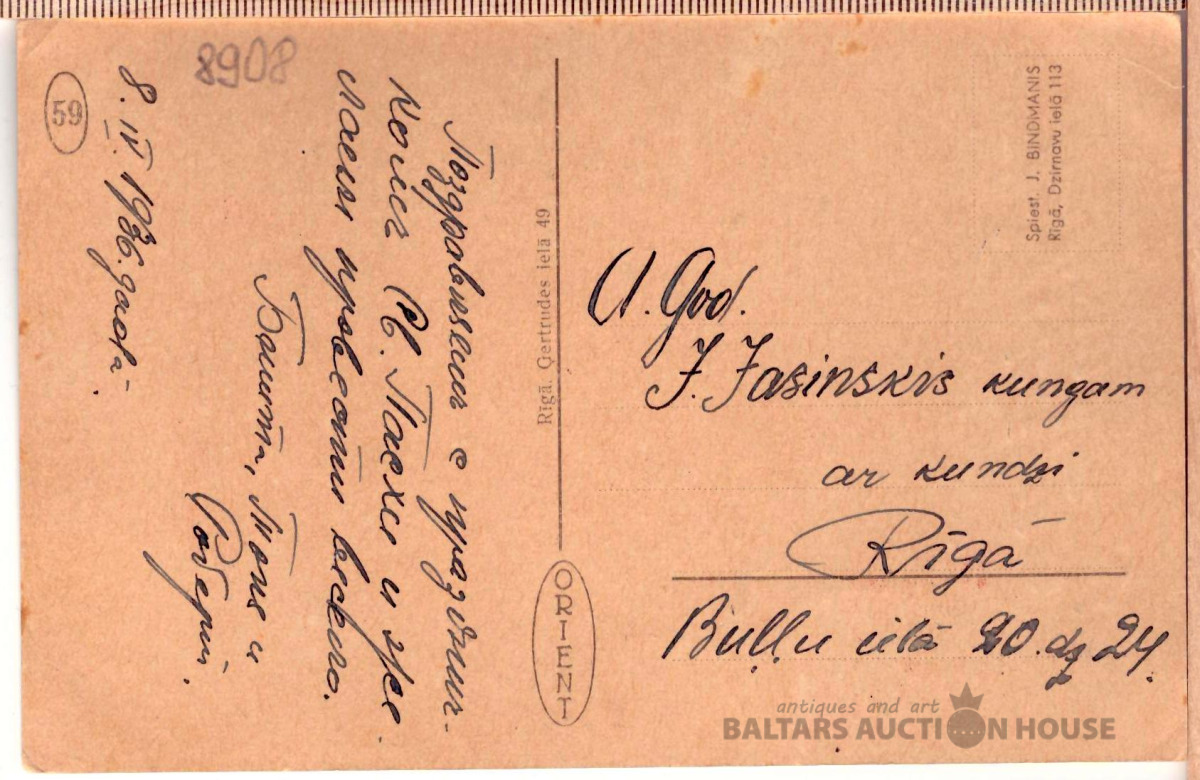 8908
59
8. IV. 1936. gadā.
Поздравляем с праздни-
ком Св. Пасхи и же-
лаем провести весело.
Тоня и
Роберт.
Rīgā, Ģertrudes ielā 49
ORIENT
Spiest. J. BINDMANIS
Rīgā, Dzirnavu ielā 113
A. God.
J. Jasinskis kungam
ar kundzi
Rīgā
Buļļu ielā 20. dz 24.
antiques and art
BALTARS AUCTION HOUSE